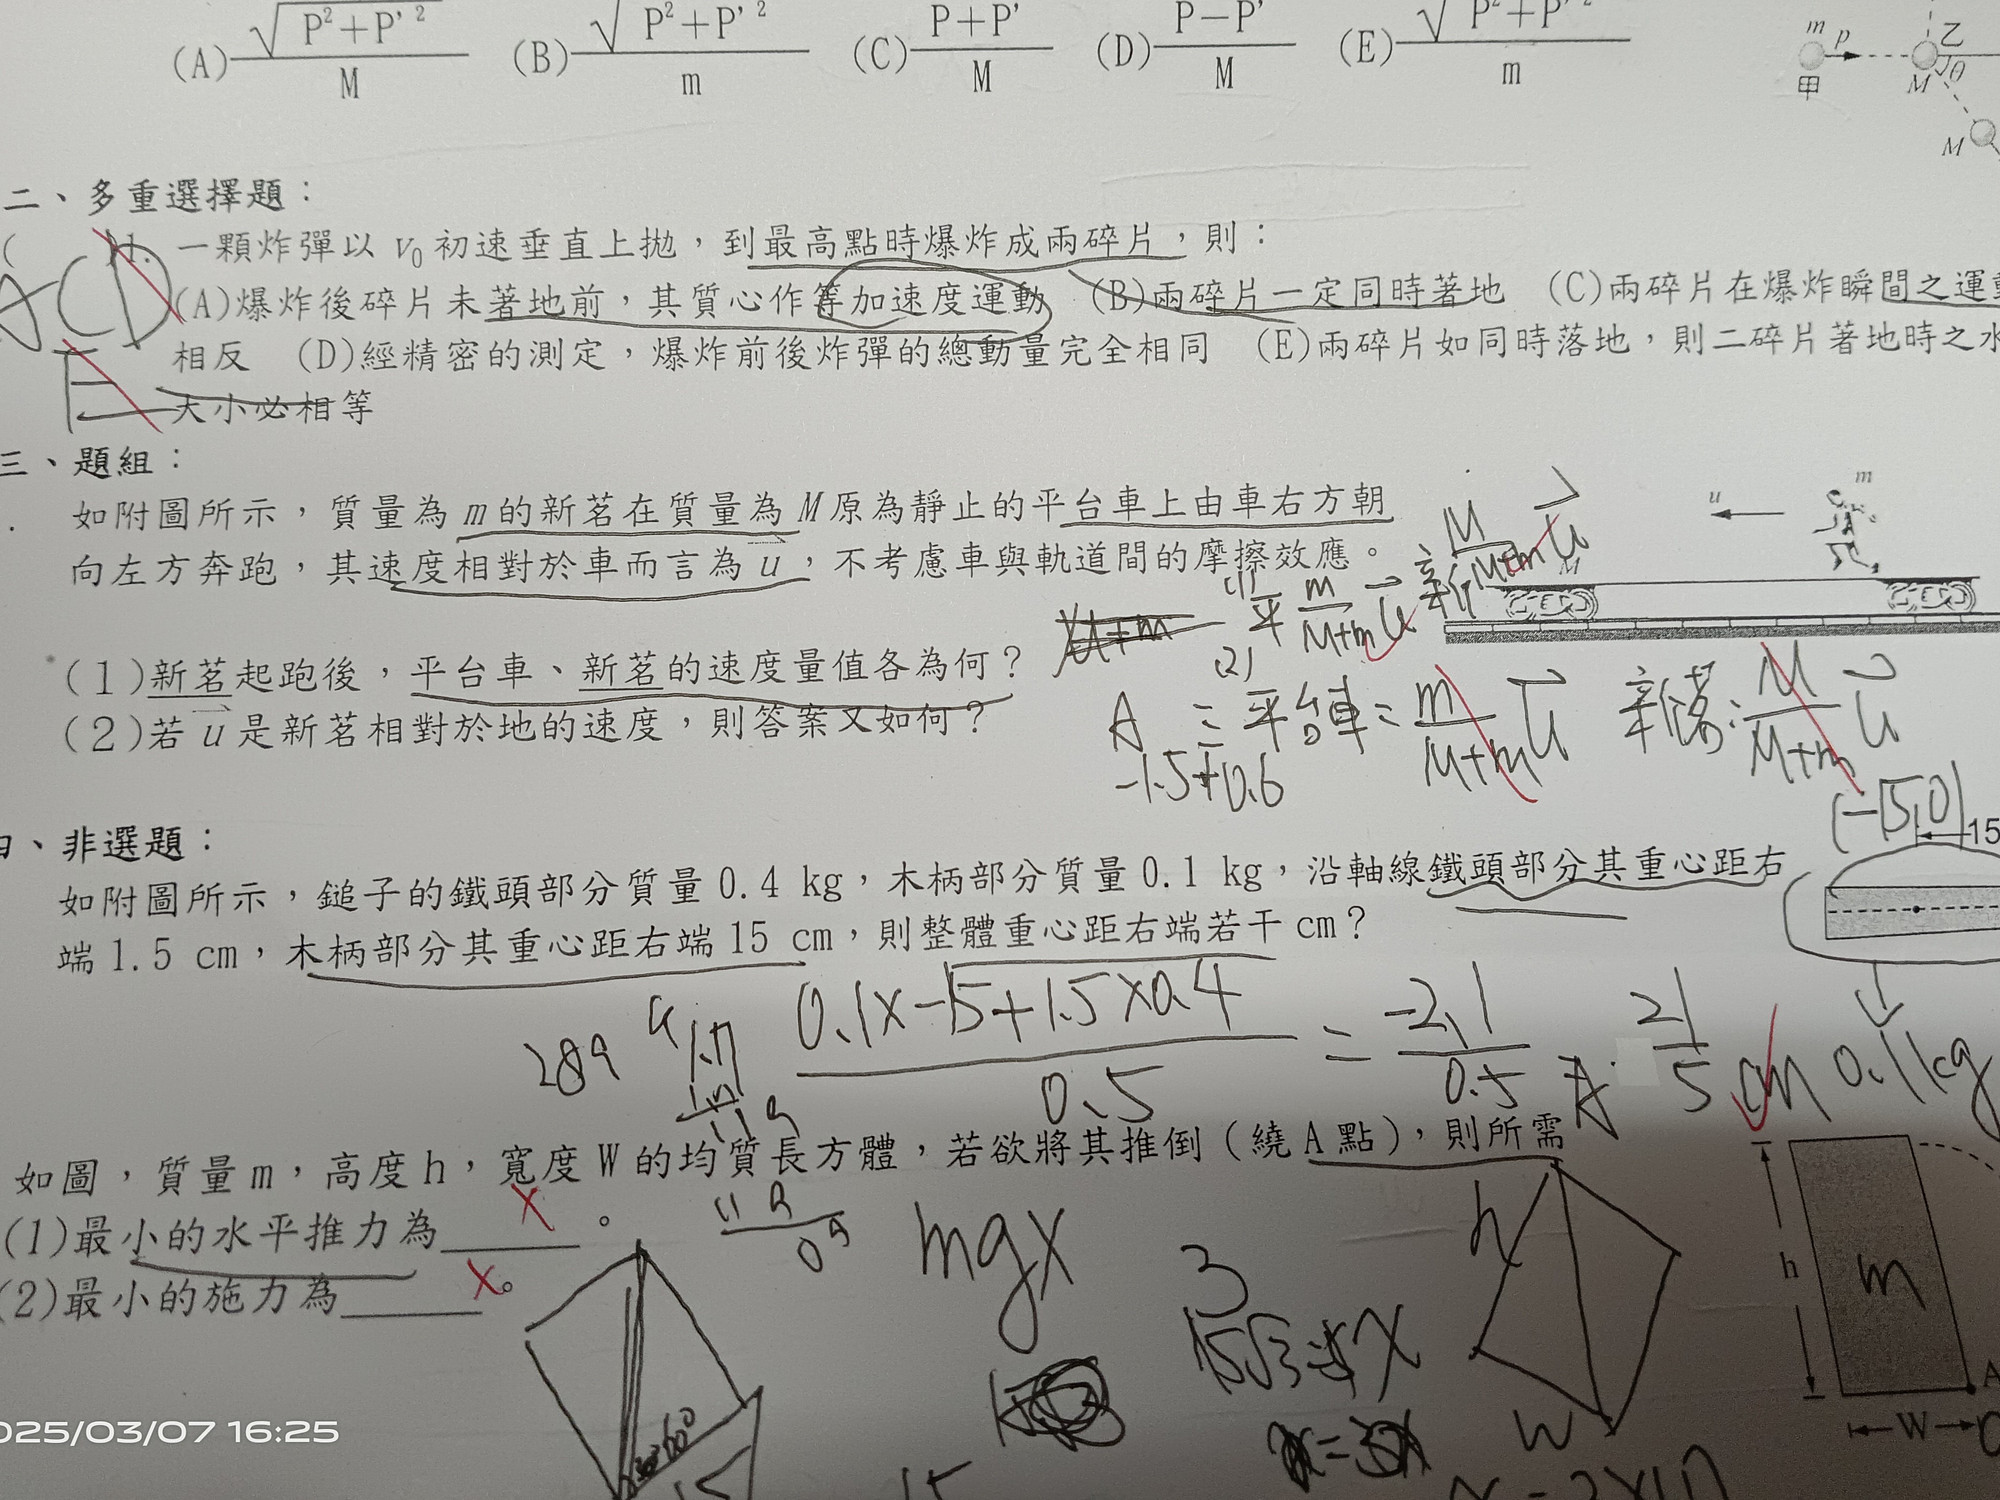 (A) √P²+P'² / M (B) √P²+P'² / m (C) P+P' / M (D) P−P' / M (E) √P²+P'² / m
m p 乙
甲 M θ
M
二、多重選擇題：
( )1. 一顆炸彈以 v₀ 初速垂直上拋，到最高點時爆炸成兩碎片，則：
ACD
(A)爆炸後碎片未著地前，其質心作等加速度運動 (B)兩碎片一定同時著地 (C)兩碎片在爆炸瞬間之運動
相反 (D)經精密的測定，爆炸前後炸彈的總動量完全相同 (E)兩碎片如同時落地，則二碎片著地時之水
E
大小必相等
三、題組：
如附圖所示，質量為 m 的新茗在質量為 M 原為靜止的平台車上由車右方朝
向左方奔跑，其速度相對於車而言為 u，不考慮車與軌道間的摩擦效應。
u m
M
(1) 平 m/M+m u 新 M/M+m u
(1)新茗起跑後，平台車、新茗的速度量值各為何？
(2)若 u 是新茗相對於地的速度，則答案又如何？
(2)
A 平台車= m/M+m u 新茗: M/M+m u
-1.5+0.6
四、非選題：
(-15,0)
15
如附圖所示，鎚子的鐵頭部分質量 0.4 kg，木柄部分質量 0.1 kg，沿軸線鐵頭部分其重心距右
端 1.5 cm，木柄部分其重心距右端 15 cm，則整體重心距右端若干 cm？
0.1×-15+1.5×0.4 / 0.5 = -2.1 / 0.5 A: 21/5 cm 0.1kg
289
如圖，質量 m，高度 h，寬度 W 的均質長方體，若欲將其推倒（繞 A 點），則所需
(1)最小的水平推力為 X 。
(2)最小的施力為 X 。
mgx
3
15√3
h
W
h m
A
W
60°
15
2025/03/07 16:25